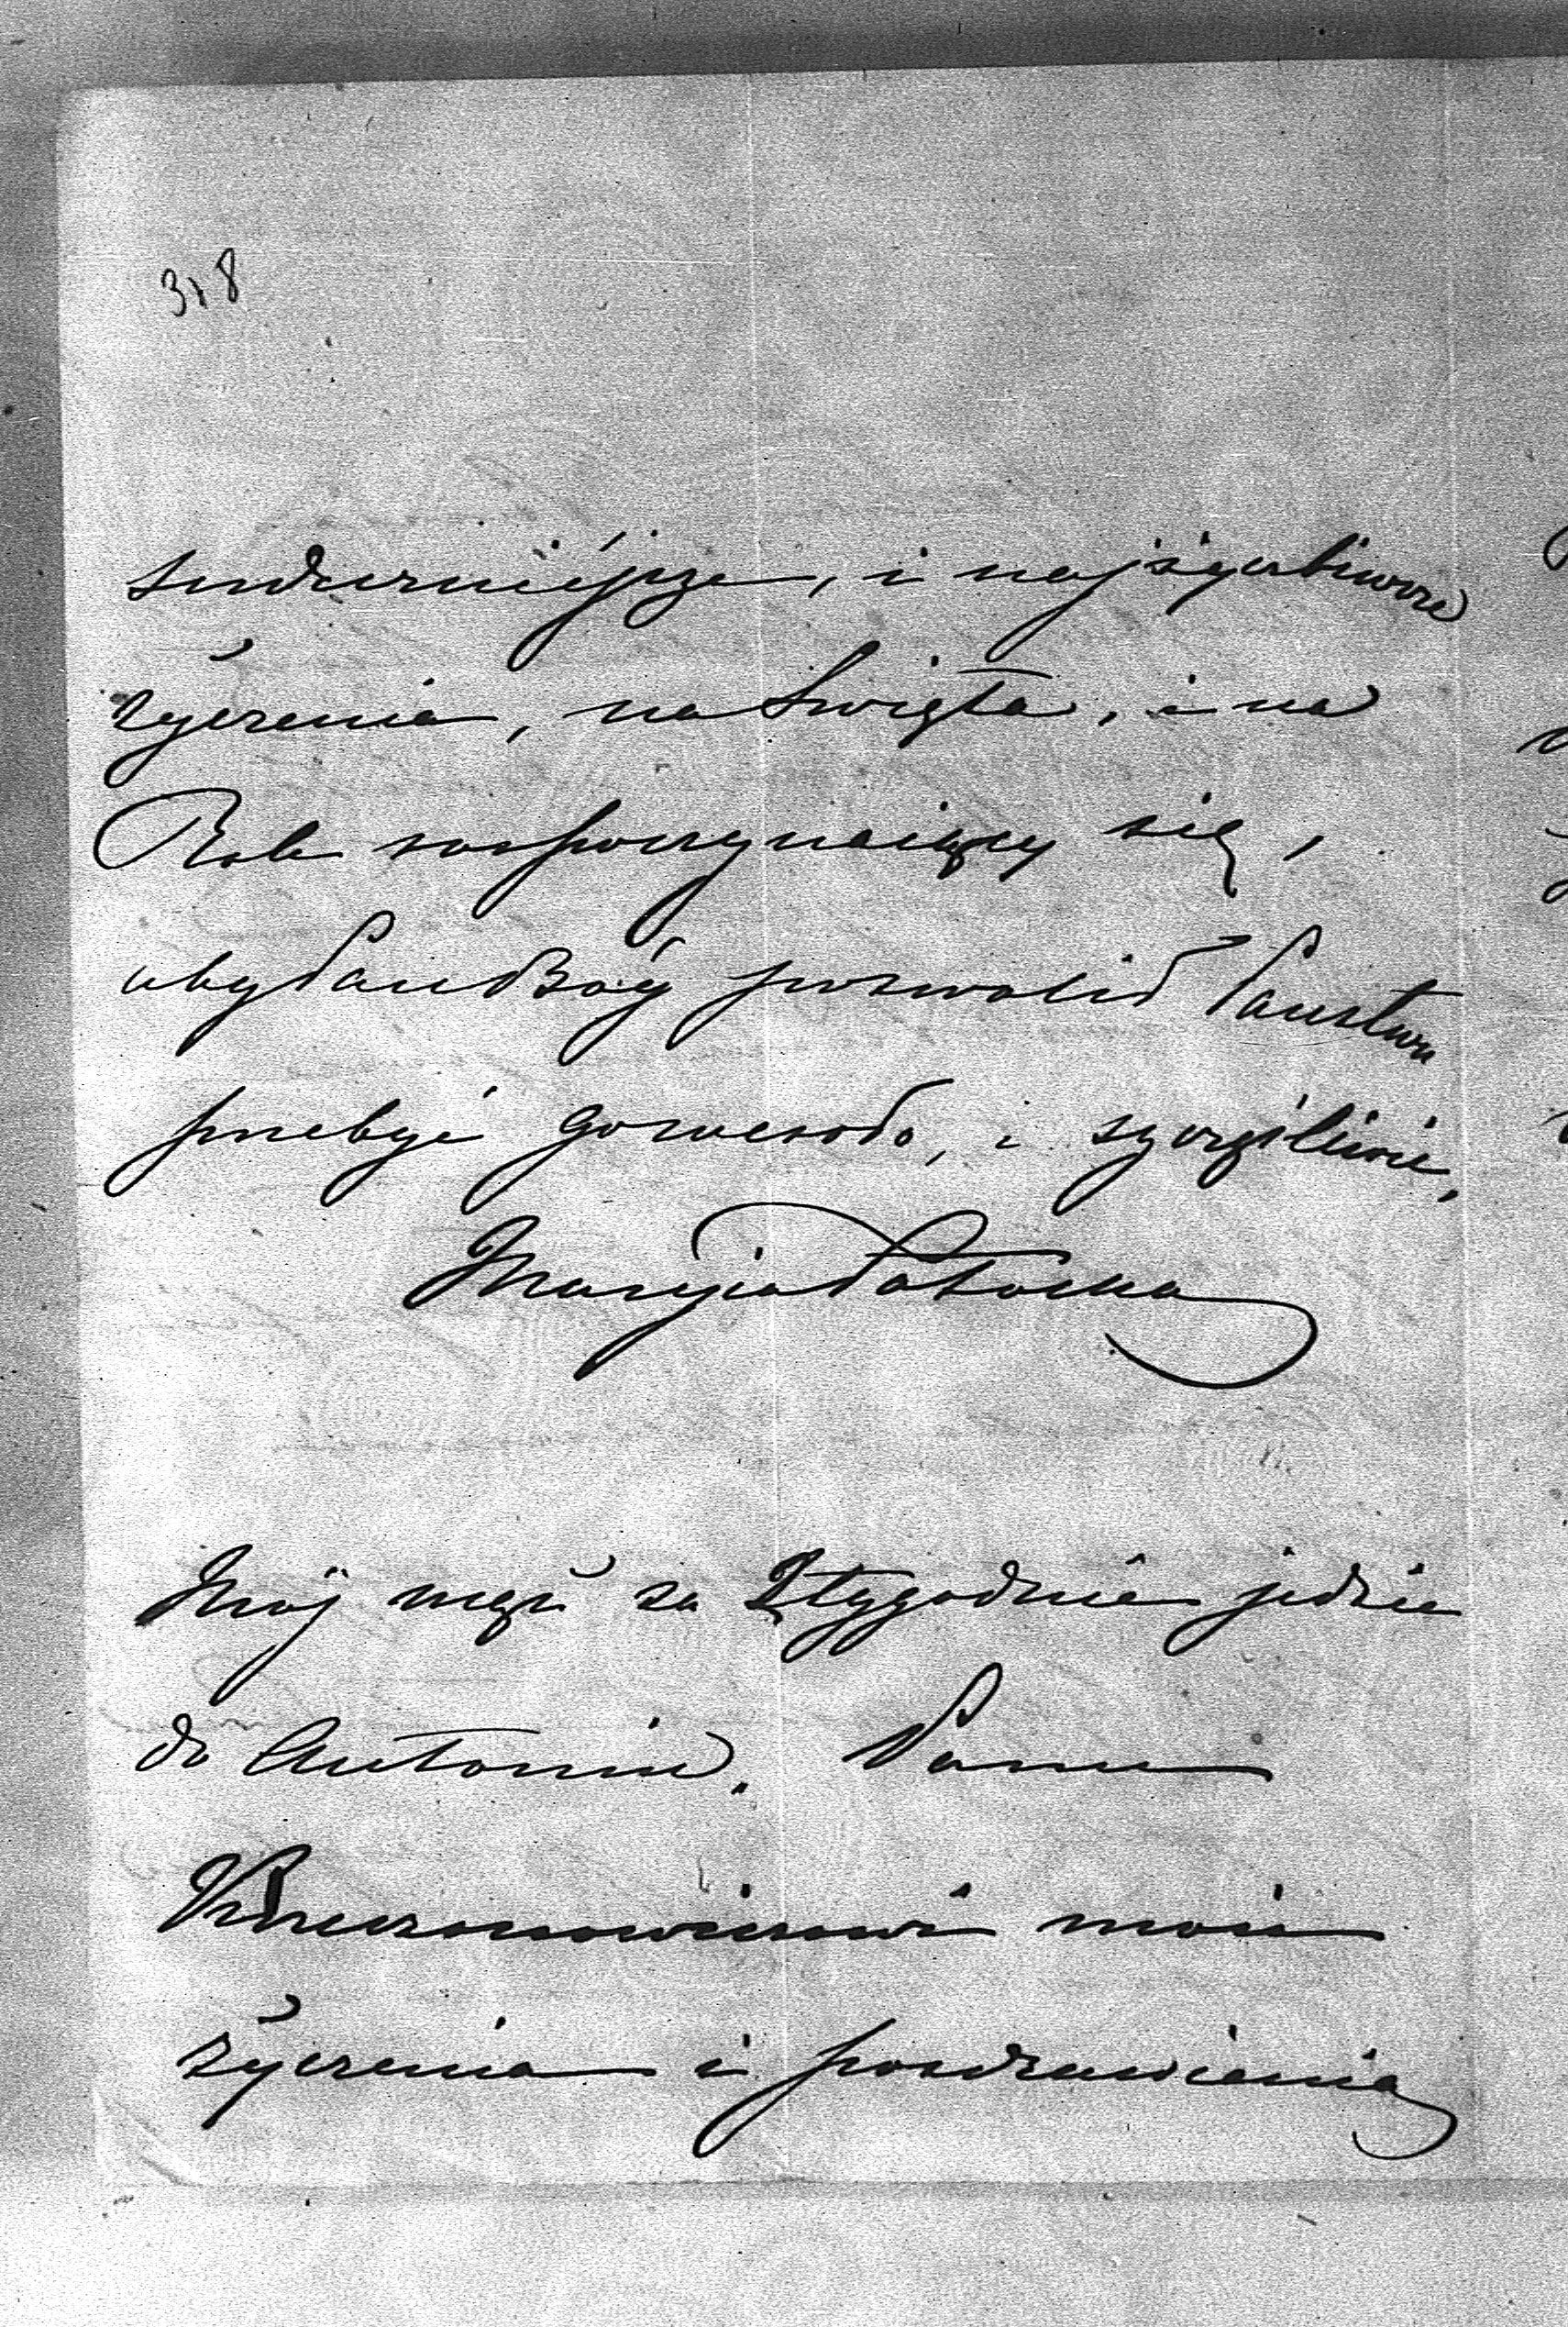 318
serdeczniéjsze, i najżyczliwsze
życzenia, na Swięta, i na
Rok rozpoczynaiący się,
aby Pan Bóg pozwolił Państwu
przebyć go wesoło, i szczęśliwie.
Maryia Potocka
Mój mąż za 2 tygodnie jedzie
do Antonin. Panu
moie
życzenia i pozdrowienia